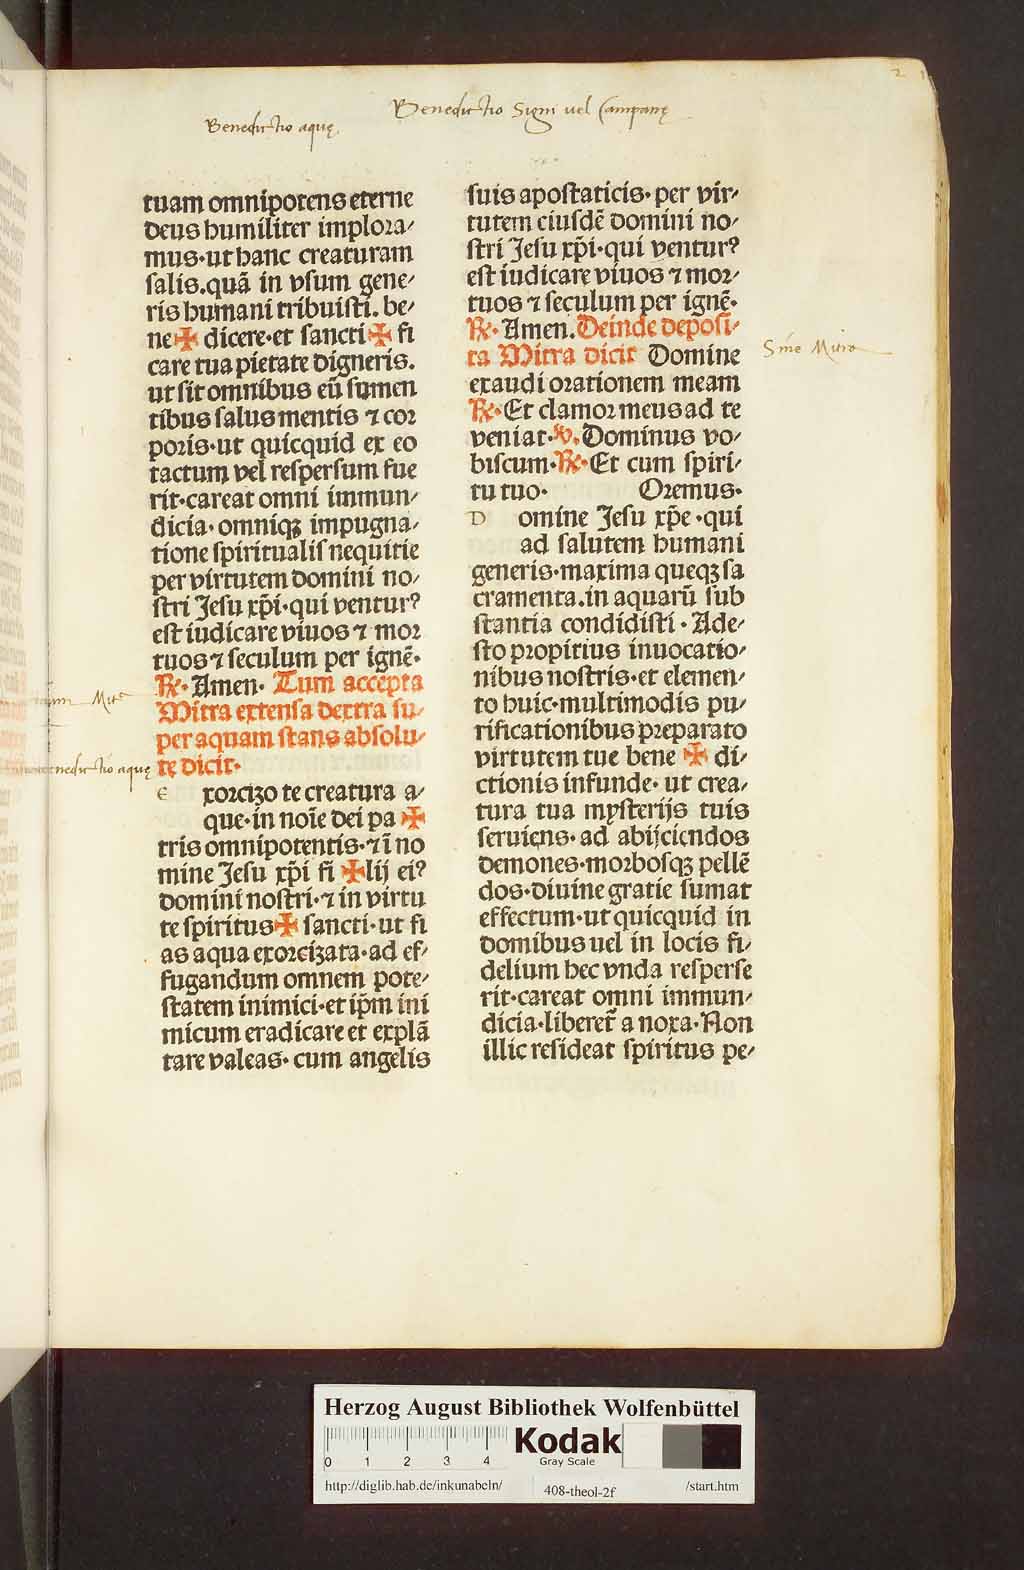 2
Benedictio Signi vel Campanę
Benedictio aquę.
tuam omnipotens eterne
deus humiliter implora-
mus·ut hanc creaturam
salis.quā in vsum gene-
ris humani tribuisti. be-
ne✠ dicere·et sancti✠ fi
care tua pietate digneris.
ut sit omnibus eū sumen
tibus salus mentis ⁊ cor
poris·ut quicquid ex eo
tactum vel respersum fue
rit·careat omni immun-
dicia· omniqꝫ impugna-
tione spiritualis nequitie
per virtutem domini no-
stri Jesu xp̄i·qui venturꝰ
est iudicare viuos ⁊ mor
tuos ⁊ seculum per ignē·
℟· Amen· Tum accepta
Mitra extensa dextra su-
per aquam stans absolu-
te dicit·
e xorcizo te creatura a-
que·in noīe dei pa✠
tris omnipotentis·⁊ ī no
mine Jesu xp̄i fi ✠lij eiꝰ
domini nostri·⁊ in virtu
te spiritus✠ sancti·ut fi
as aqua exorcizata·ad ef-
fugandum omnem pote-
statem inimici·et ip̄m ini
micum eradicare et explā
tare valeas· cum angelis
Mitra
benedictio aquę
suis apostaticis· per vir-
tutem eiusdē domini no-
stri Jesu xp̄i·qui venturꝰ
est iudicare viuos ⁊ mor-
tuos ⁊ seculum per ignē·
℟· Amen. Deinde deposi-
ta Mitra dicit Domine
exaudi orationem meam
℟·Et clamor meus ad te
veniat·℣.Dominus vo-
biscum·℟·Et cum spiri-
tu tuo· Oremus·
D omine Jesu xp̄e ·qui
ad salutem humani
generis·maxima queqꝫ sa
cramenta.in aquarū sub
stantia condidisti · Ade-
sto propitius inuocatio-
nibus nostris·et elemen-
to huic·multimodis pu-
rificationibus preparato
virtutem tue bene ✠ di-
ctionis infunde· ut crea-
tura tua mysterijs tuis
seruiens· ad abijciendos
demones·morbosqꝫ pellē
dos·diuine gratie sumat
effectum·ut quicquid in
domibus uel in locis fi-
delium hec vnda resperse
rit·careat omni immun-
dicia·liberet̄ a noxa·Non
illic resideat spiritus pe-
Sine Mitra
Herzog August Bibliothek Wolfenbüttel
0 1 2 3 4
Kodak
Gray Scale
http://diglib.hab.de/inkunabeln/ 408-theol-2f /start.htm